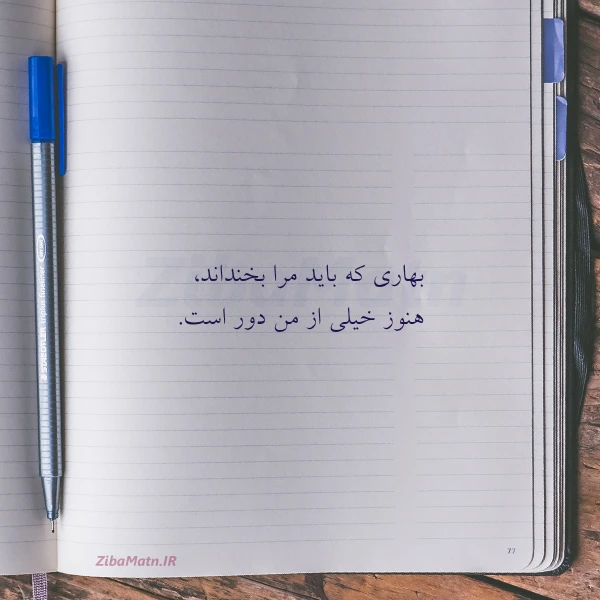 بهاری که باید مرا بخنداند،
هنوز خیلی از من دور است.
ZibaMatn.IR
77